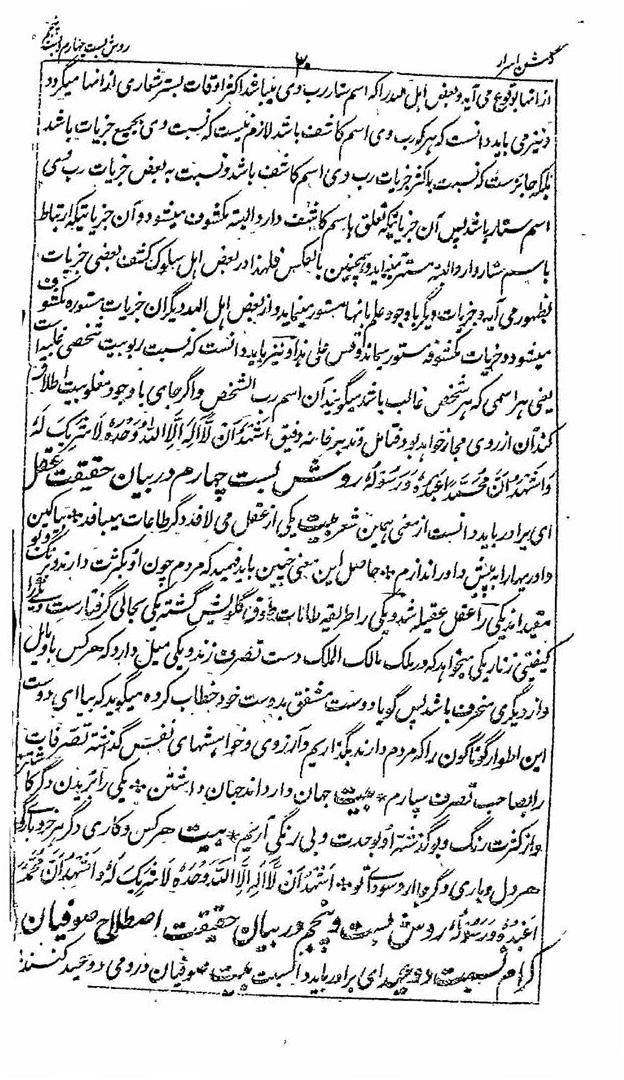 گلشن اسرار ۳۰ روش بست چهارم و بست پنجم
از انها بوقوع می آید و بعض اهل الله را که اسم ستار رب وی میباشد اکثر اوقات بستر شعاری اندانها میگردد
و نیز می باید دانست که هر که رب وی اسم کاشف باشد لازم نیست که نسبت وی بجمیع جزیات باشد
بلکه جائز ست که نسبت باکثر جزیات رب وی اسم کاشف باشد و نسبت به بعض جزیات رب وی
اسم ستار باشد پس آن جزیاتیکه تعلق باسم کاشف دارد البته مکشوف میشود و آن جزیاتیکه ارتباط
باسم ستار دارد البته مستتر میماید و همچنین بالعکس فلهذا در بعض اهل سلوک کشف بعضی جزیات
بظهور می آید و جزیات دیگر با وجود علم بانها مستور مینماید و از بعض اهل الله دیگر آن جزیات مستوره مکشوف
میشود و جزیات مکشوفه مستور میماند و قس علی هذا و نیز باید دانست که نسبت ربوبیت شخصی غلبه است
یعنی هر اسمی که بر شخص غالب باشد میگویند آن اسم رب الشخص و اگر جای با وجود مغلوبیت اطلاق
کند آن از روی مجاز خواهد بود فتامل و تدبر فانه دقیق اَشْهَدُ اَنْ لَّا اِلٰهَ اِلَّا اللّٰهُ وَحْدَهٗ لَا شَرِیْکَ لَهٗ
وَاَشْهَدُ اَنَّ مُحَمَّدًا عَبْدُهٗ وَرَسُوْلُهٗ روش بست چهارم در بیان حقیقت عقل
ای برادر باید دانست از معنی همین شعر بیت یکی از عقل می لافد دگر طامات میبافد * بیا کین
داوریها را به پیش داور اندازیم * حاصل این معنی چنین باید فهمید که مردم چون او بکثرت دارند و برنگ و بو
مقید اند یکی را عقل عقیله شد و یکی را طریقه طامات طوق گلویش گشته یکی بحالی گرفتار ست و یکی را
کیفتی زنار یکی میخواهد که در ملک مالک الملک دست تصرف زند و یکی میل دارد که هر کس باو مایل
و از دیگری منحرف باشد پس گویا دوست مشفق بدوست خود خطاب کرده میگوید که بیا ای دوست
این اطوار گوناگون را که مردم دارند بگذاریم و آرزوی و خواهشهای نفس گذشته تصرفات
را بصاحب تصرف سپارم * بیت جهان دارد اند جهان داشتن * یکی را بریدن دگر کاشتن
و از کثرت رنگ و بو گذشته او بوحدت و بی رنگی آریم * بیت هر کس و کاری دگر هر خر و باری دگر
هر دل و یاری دگر ما را سودای تو * اَشْهَدُ اَنْ لَّا اِلٰهَ اِلَّا اللّٰهُ وَحْدَهٗ لَا شَرِیْکَ لَهٗ وَاَشْهَدُ اَنَّ مُحَمَّدًا
عَبْدُهٗ وَرَسُوْلُهٗ روش بست و پنجم در بیان حقیقت اصطلاح صوفیان
کرام نسبت دو عید ای برادر باید دانست بیت صوفیان در دمی دو عید کنند